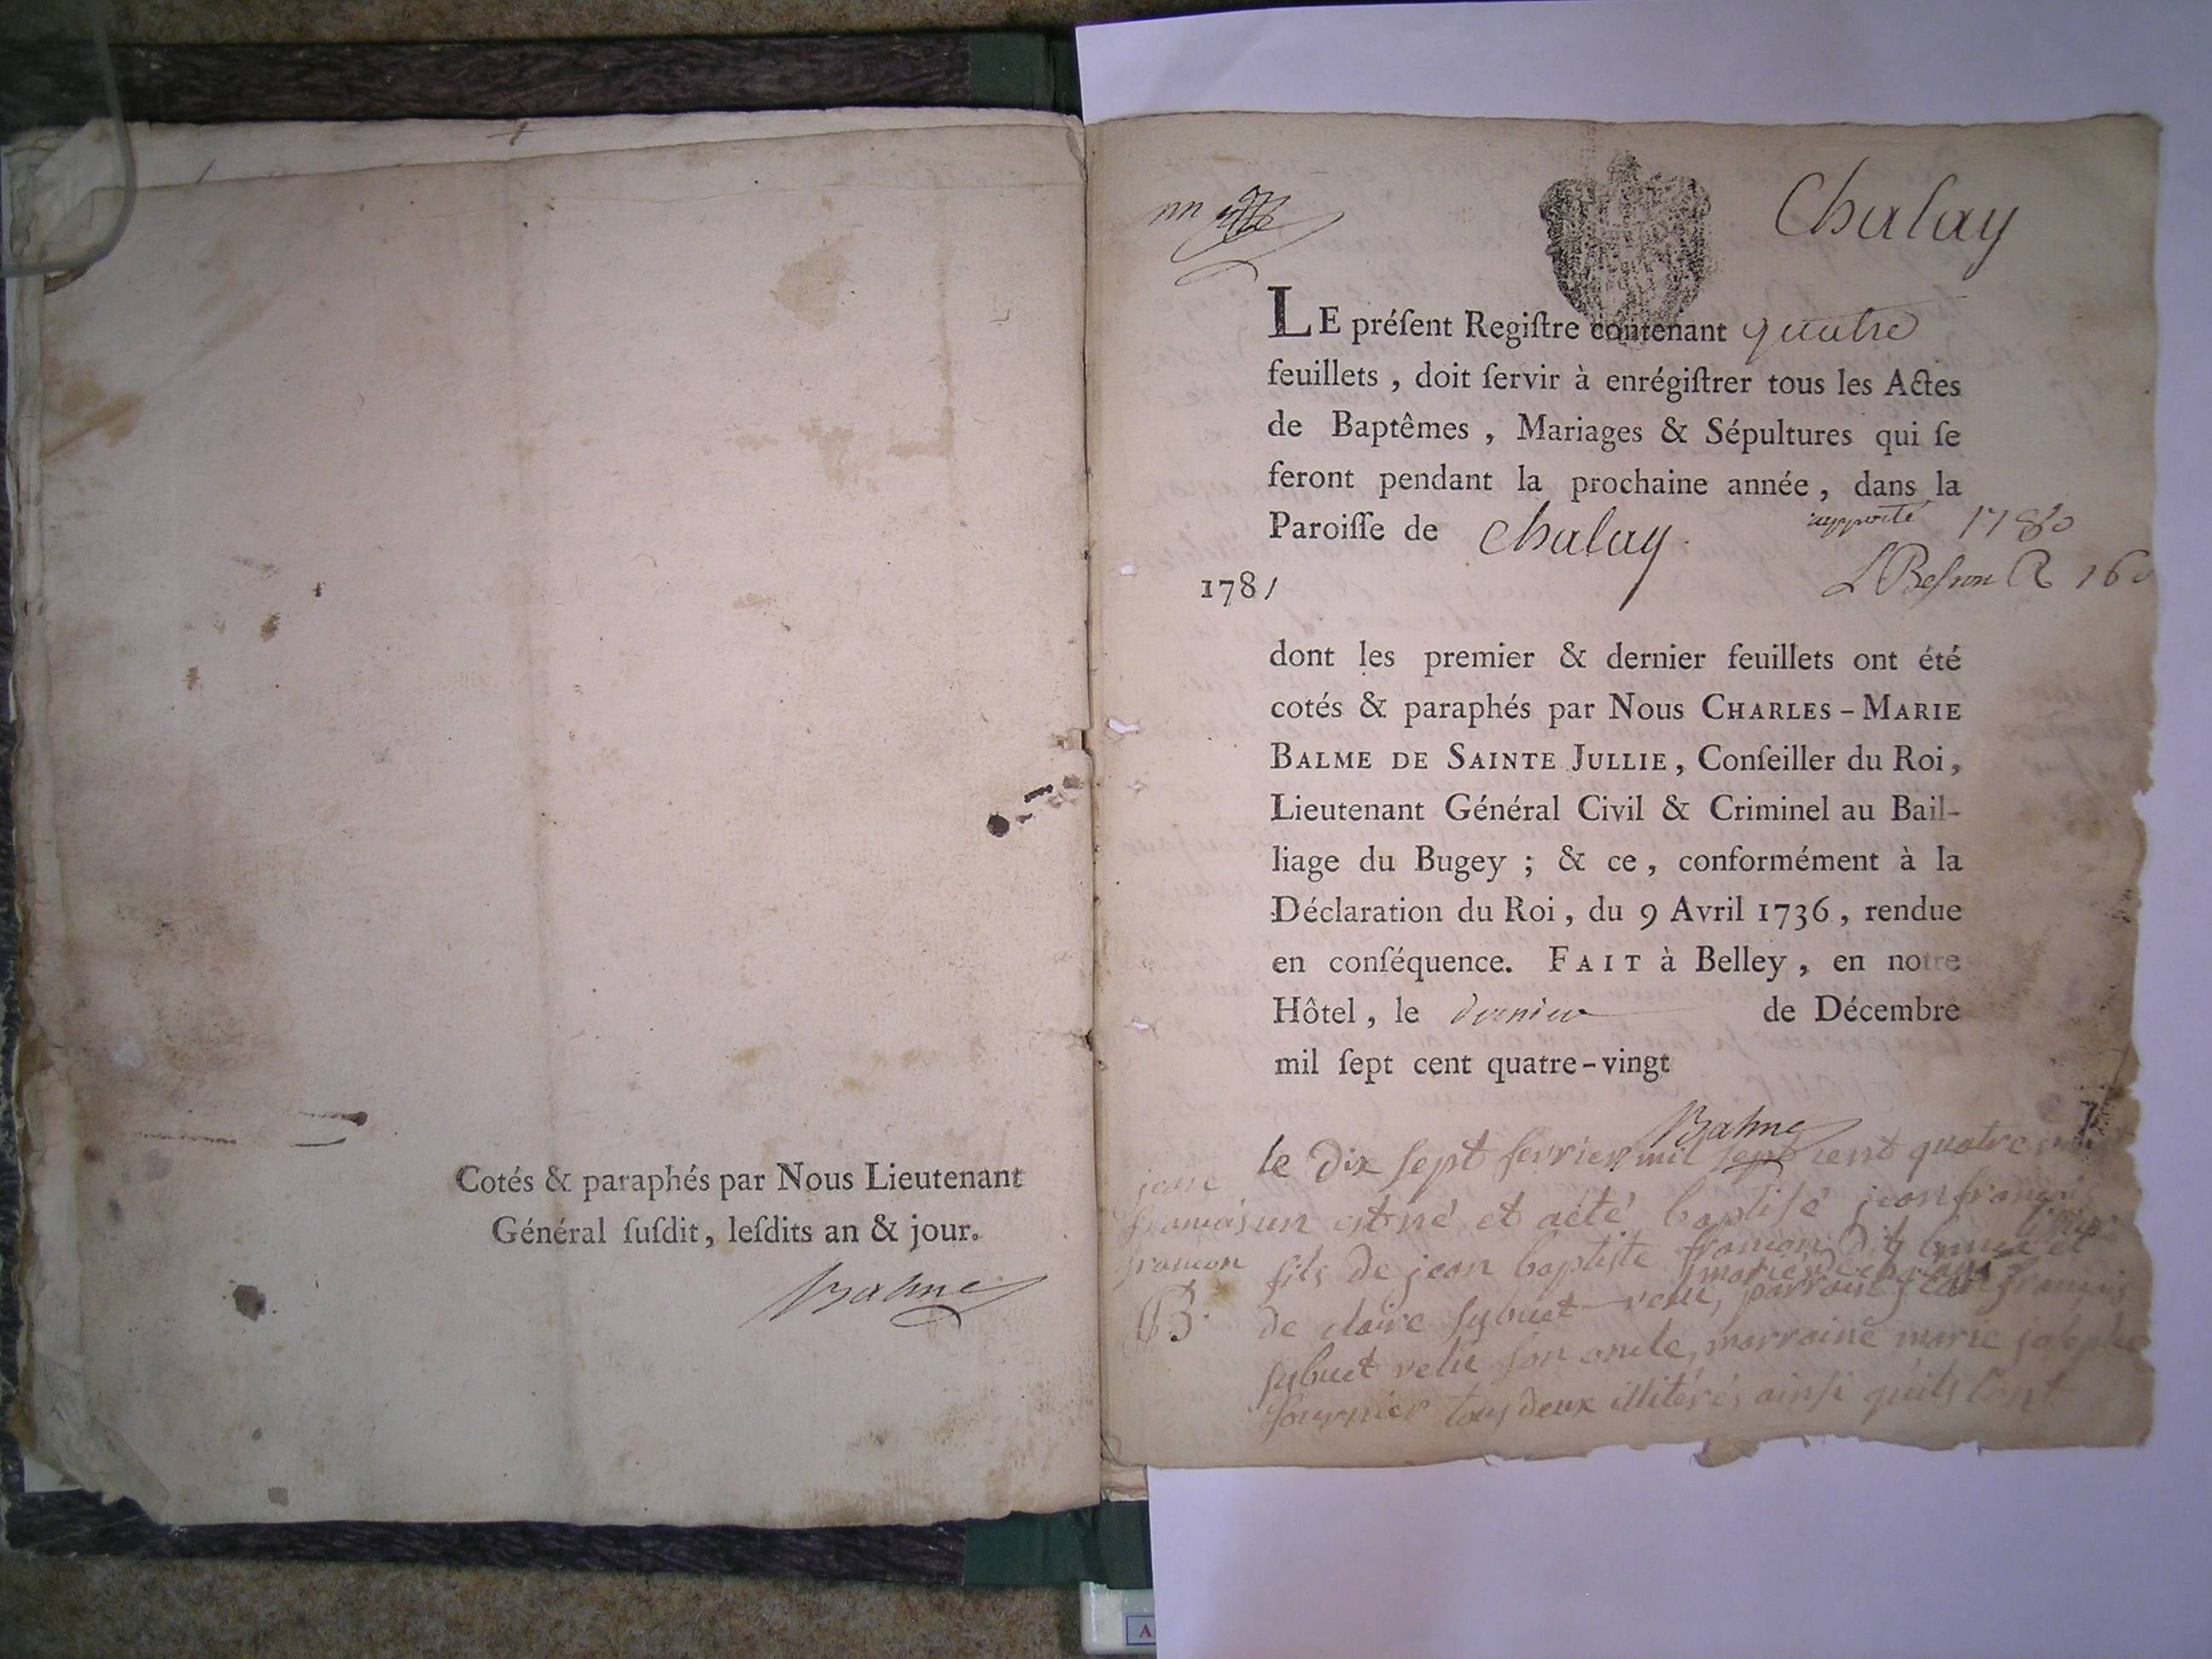 Cotés & paraphés par Nous Lieutenant
Général ſuſdit, leſdits an & jour.
Balme
Chalay
LE préſent Regiſtre contenant quatre
feuillets, doit ſervir à enrégiſtrer tous les Actes
de Baptêmes, Mariages & Sépultures qui ſe
feront pendant la prochaine année, dans la
Paroiſſe de Chalay.
apporté 1780
1781
dont les premier & dernier feuillets ont été
cotés & paraphés par Nous CHARLES-MARIE
BALME DE SAINTE JULLIE, Conſeiller du Roi,
Lieutenant Général Civil & Criminel au Bail-
liage du Bugey; & ce, conformément à la
Déclaration du Roi, du 9 Avril 1736, rendue
en conſéquence. FAIT à Belley, en notre
Hôtel, le dernier de Décembre
mil ſept cent quatre-vingt
Balme
jean
francois
francon
B.
le dix sept fevrier mil sept cent quatre vingt
un est né et a été baptisé jean francois
fils de jean baptiste francon dit et
de claire sybuet parrain jean francois
sybuet son oncle, marraine marie josephe
fournier tous deux illitérés ainsi quils l'ont